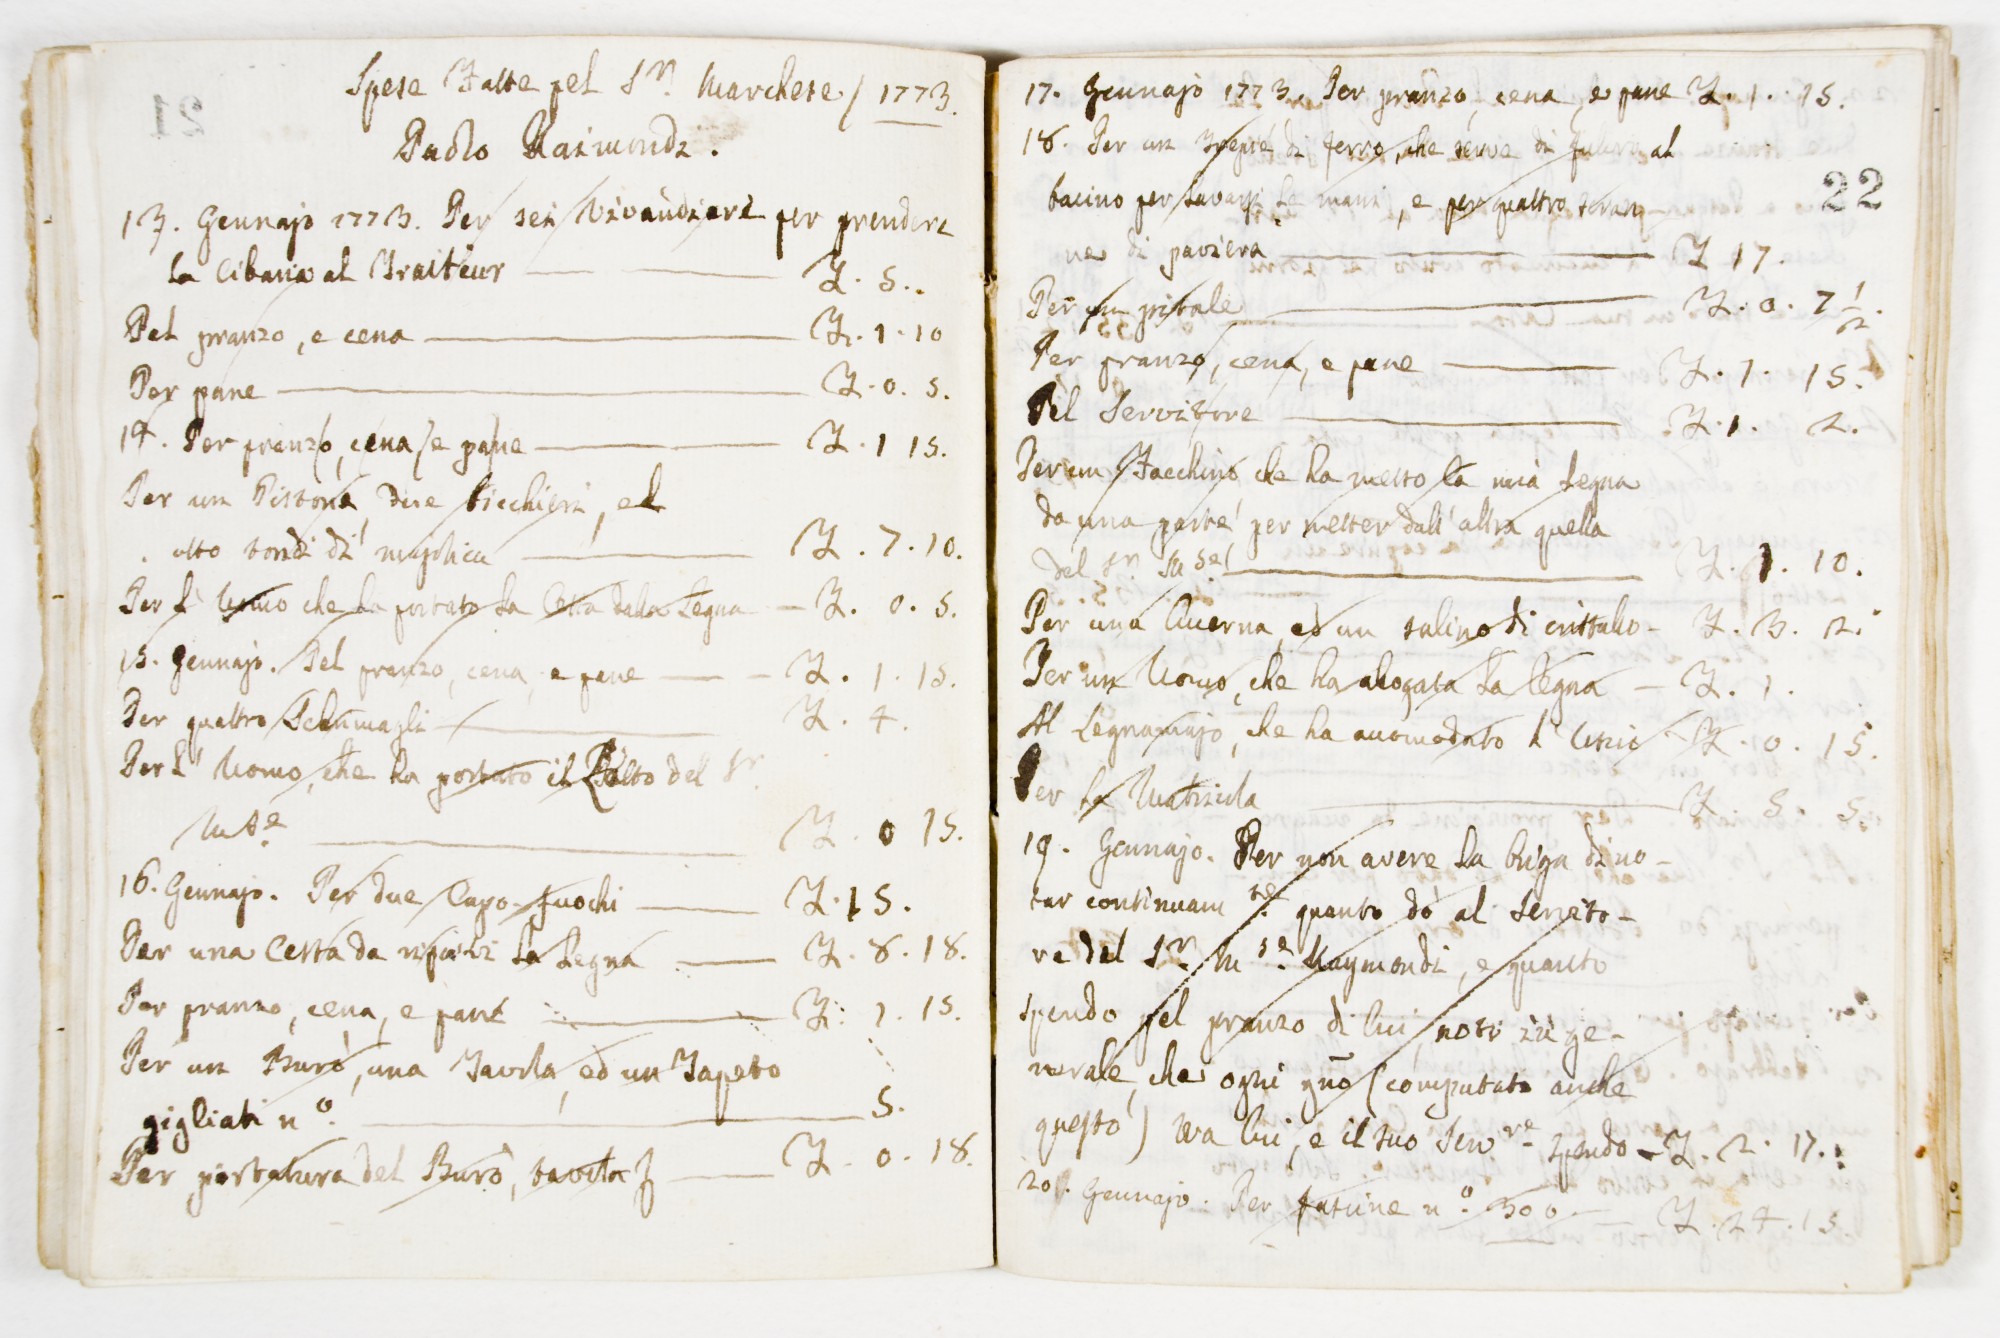 Spese Fatte pel Sr. Marchese / 1773.
Paolo Raimondi.
13. Gennajo 1773. Per sei Vivandiere per prendere
la Cibaria al Traiteur — — Z. 5..
Pel pranzo, e cena — Z. 1. 10
Per pane — Z. 0. 5.
14. Per pranzo, cena, e pane — Z. 1 15.
Per un Pistone, due bicchieri, ed
otto tondi di majolica — Z. 7. 10.
Per l' Uomo che ha portato la Cesta dalla Legna — Z. 0. 5.
15. Gennajo. Pel pranzo, cena, e pane — Z. 1. 15.
Per quattro — Z. 4.
Per l' Uomo, che ha portato il del Sr.
— Z. 0 15.
16. Gennajo. Per due Capo-fuochi — Z. 15.
Per una Cesta da riporvi la Legna — Z. 8. 18.
Per pranzo, cena, e pane — Z. 1. 15.
Per un Burò, una Tavola, ed un Tapeto
gigliati no. — 5.
Per portatura del Burò, tavola — Z. 0. 18.
17. Gennajo 1773. Per pranzo, cena, e pane Z. 1. 15.
18. Per un Trepiè di ferro, che serve di al
bacino per lavarsi le mani, e per quattro
ne di — Z 17.
Per un — Z. 0. 7 1/2.
Per pranzo, cena, e pane — Z. 1. 15.
Pel Servitore — Z. 1. 2.
Per un Facchino che ha messo la mia Legna
da una parte, per metter dall' altra quella
del Sr. — Z. 1. 10.
Per una lucerna, ed un salino di cristallo — Z. 3. 2.
Per un Uomo, che ha alogata la Legna — Z. 1.
Al Legnamajo, che ha accomodato l' Uscio — Z. 0. 15.
Per la Matricola — Z. 5. 5.
19. Gennajo. Per non avere la briga di no-
tar continuamte. quanto dò al Servito-
re del Sr. Mse. Raymondi, e quanto
spendo pel pranzo di lui, noto in ge-
nerale, che ogni gno (computato anche
questo) tra lui, e il suo Servre. spendo — Z. 2. 17.
20. Gennajo. Per fascine no. 300 — Z. 24. 15
22